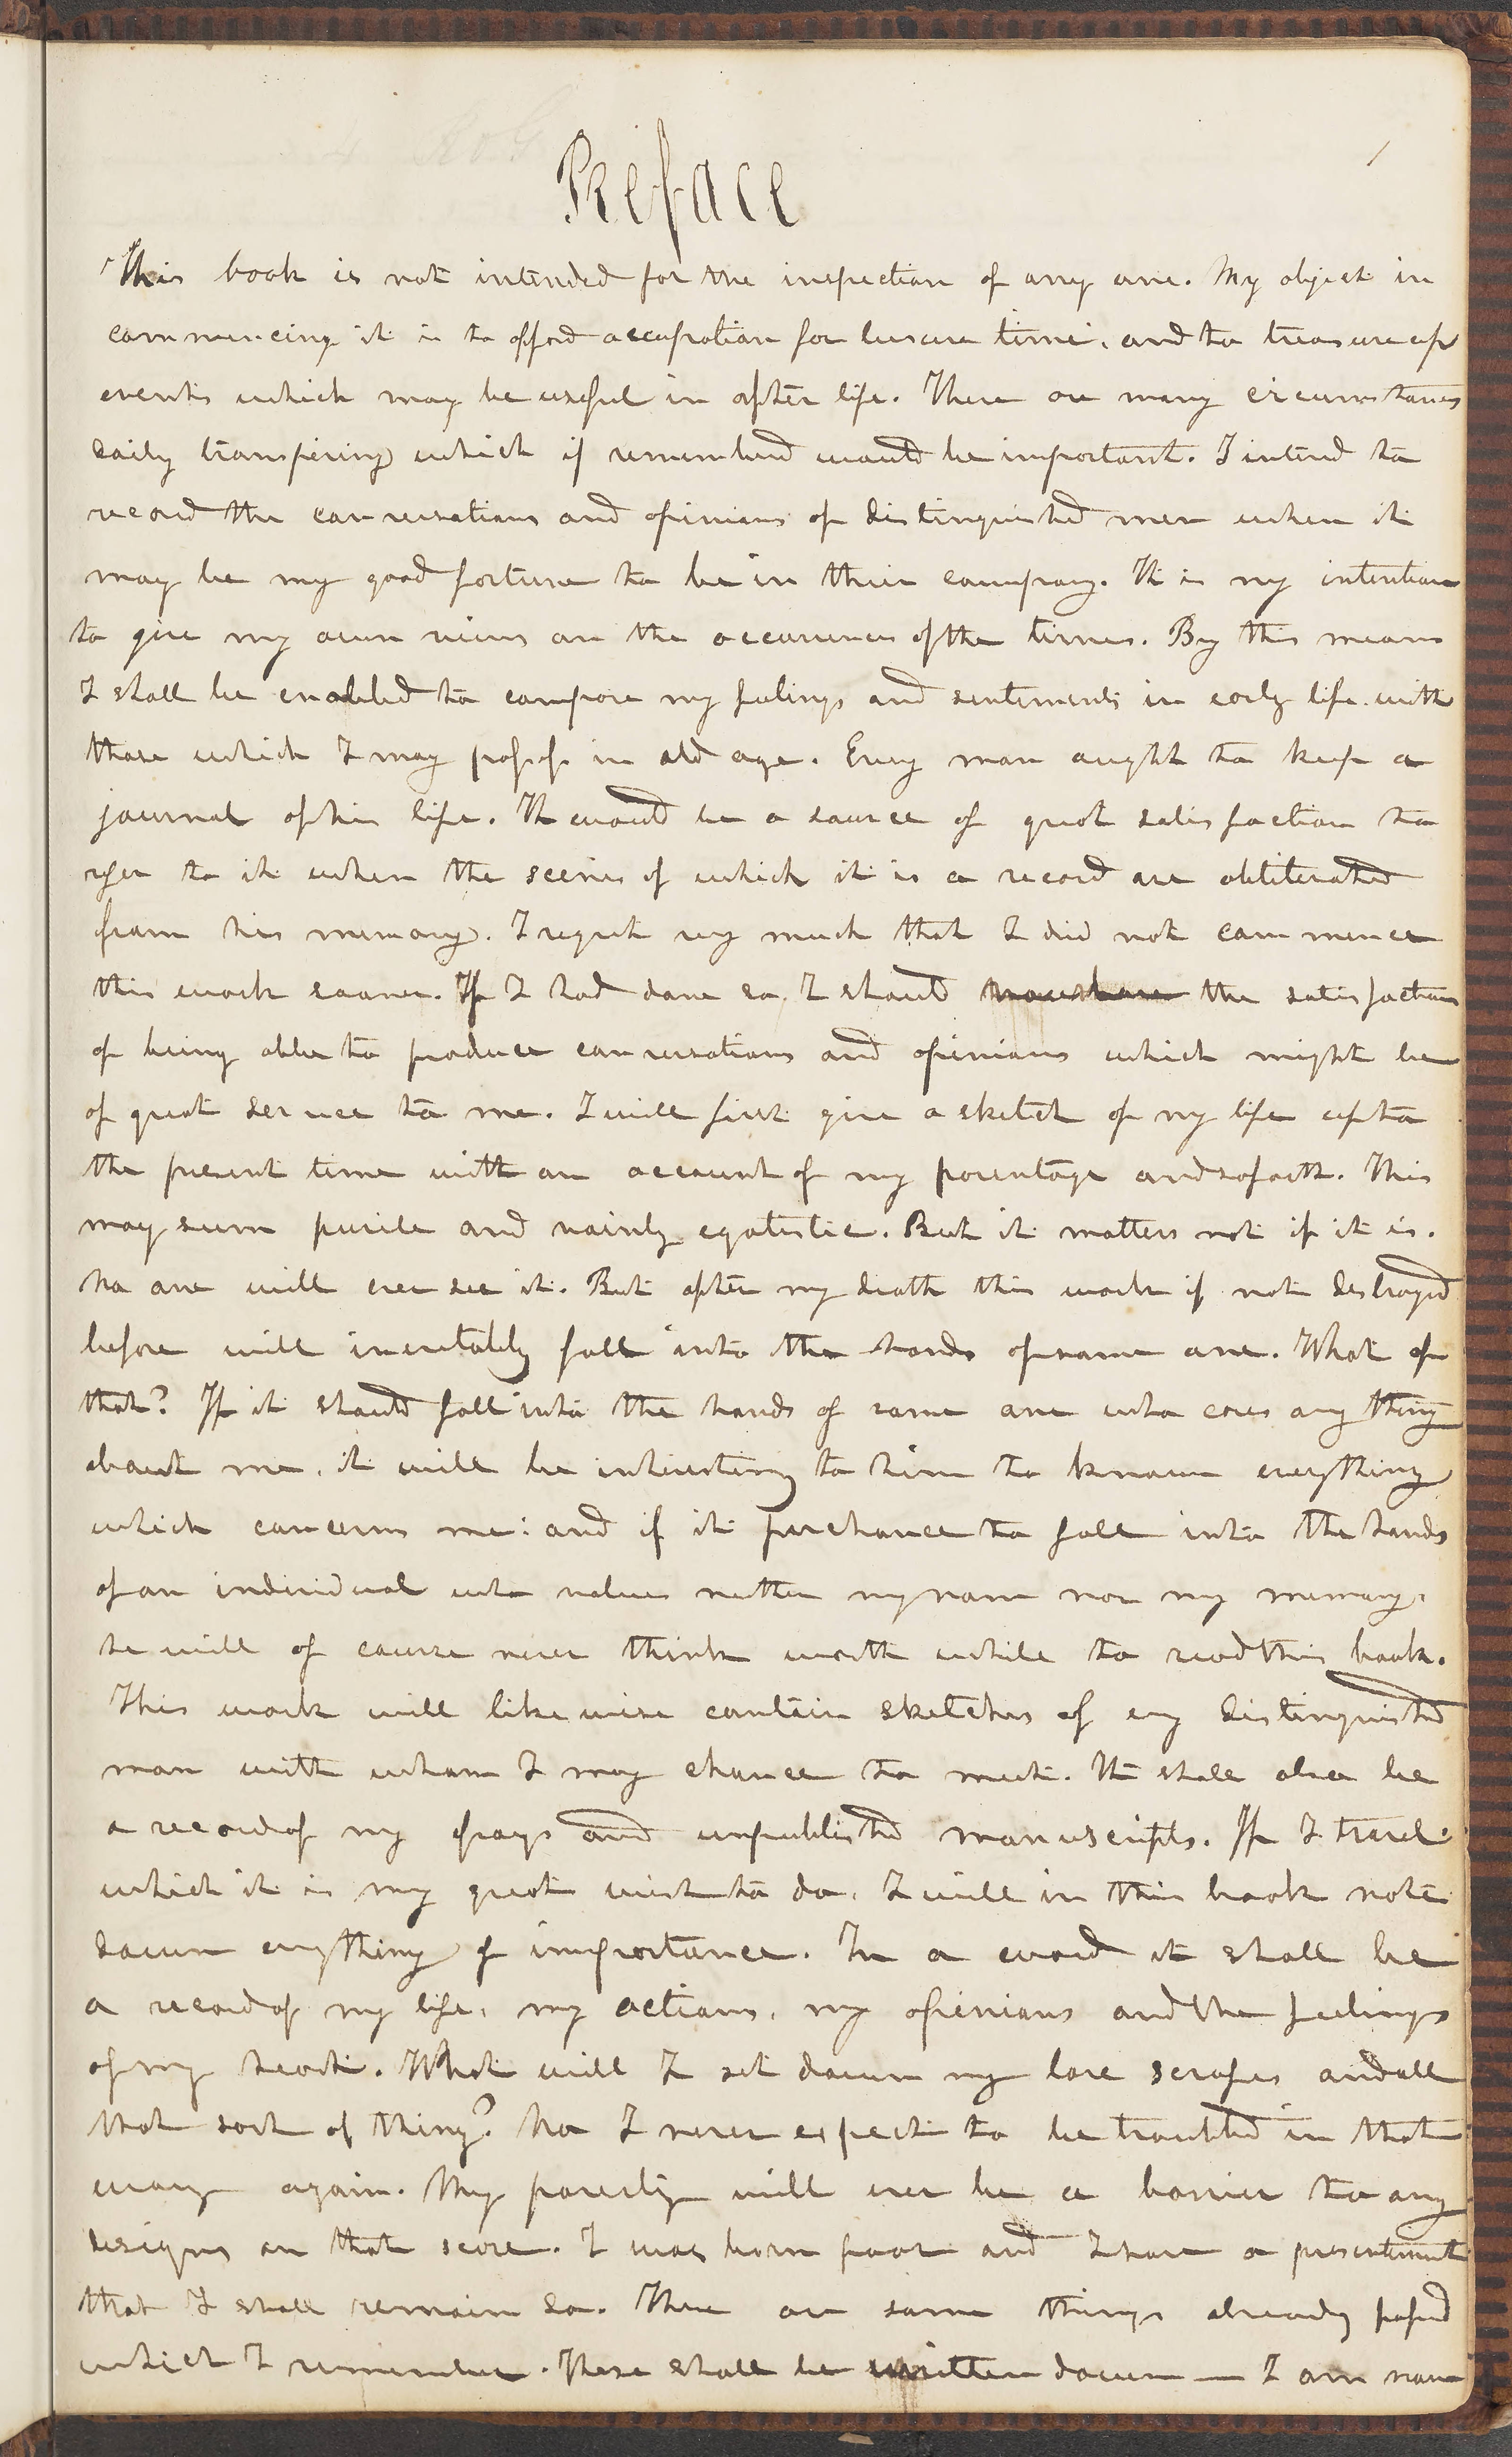 1
Preface
This book is not intended for the inspection of any one. My object in
commencing it is to afford occupation for leisure time, and to treasure up
events which may be useful in after life. There are many circumstances
daily transpiring which if remembered would be important. I intend to
record the conversations and opinions of distinguished men when it
may be my good fortune to be in their company. It is my intention
to give my own views on the occurrences of the times. By this means
I shall be enabled to compare my feelings and sentiments in early life with
those which I may possess in old age. Every man ought to keep a
journal of his life. It would be a source of great satisfaction to
refer to it when the scenes of which it is a record are obliterated
from his memory. I regret very much that I did not commence
this work sooner. If I had done so, I should now have the satisfaction
of being able to produce conversations and opinions which might be
of great service to me. I will first give a sketch of my life up to
the present time with an account of my parentage and so forth. This
may seem puerile and vainly egotistic. But it matters not if it is.
No one will ever see it. But after my death this work if not destroyed
before will inevitably fall into the hands of some one. What of
that? If it should fall into the hands of some one who cares any thing
about me, it will be interesting to him to know everything
which concerns me: and if it perchance to fall into the hands
of an individual who values neither my name nor my memory,
he will of course never think worth while to read this book.
This work will likewise contain sketches of evy distinguished
man with whom I may chance to meet. It shall also be
a record of my frays and unpublished manuscripts. If I travel,
which it is my great wish to do, I will in this book note
down evything of importance. In a word it shall be
a record of my life, my actions, my opinions and the feelings
of my heart. What will I set down my love scrapes and all
that sort of thing? No I never expect to be troubled in that
way again. My poverty will ever be a barrier to any
designs on that score. I was born poor and I have a presentiment
that I shall remain so. There are some things already passed
which I remember. These shall be written down — I am now